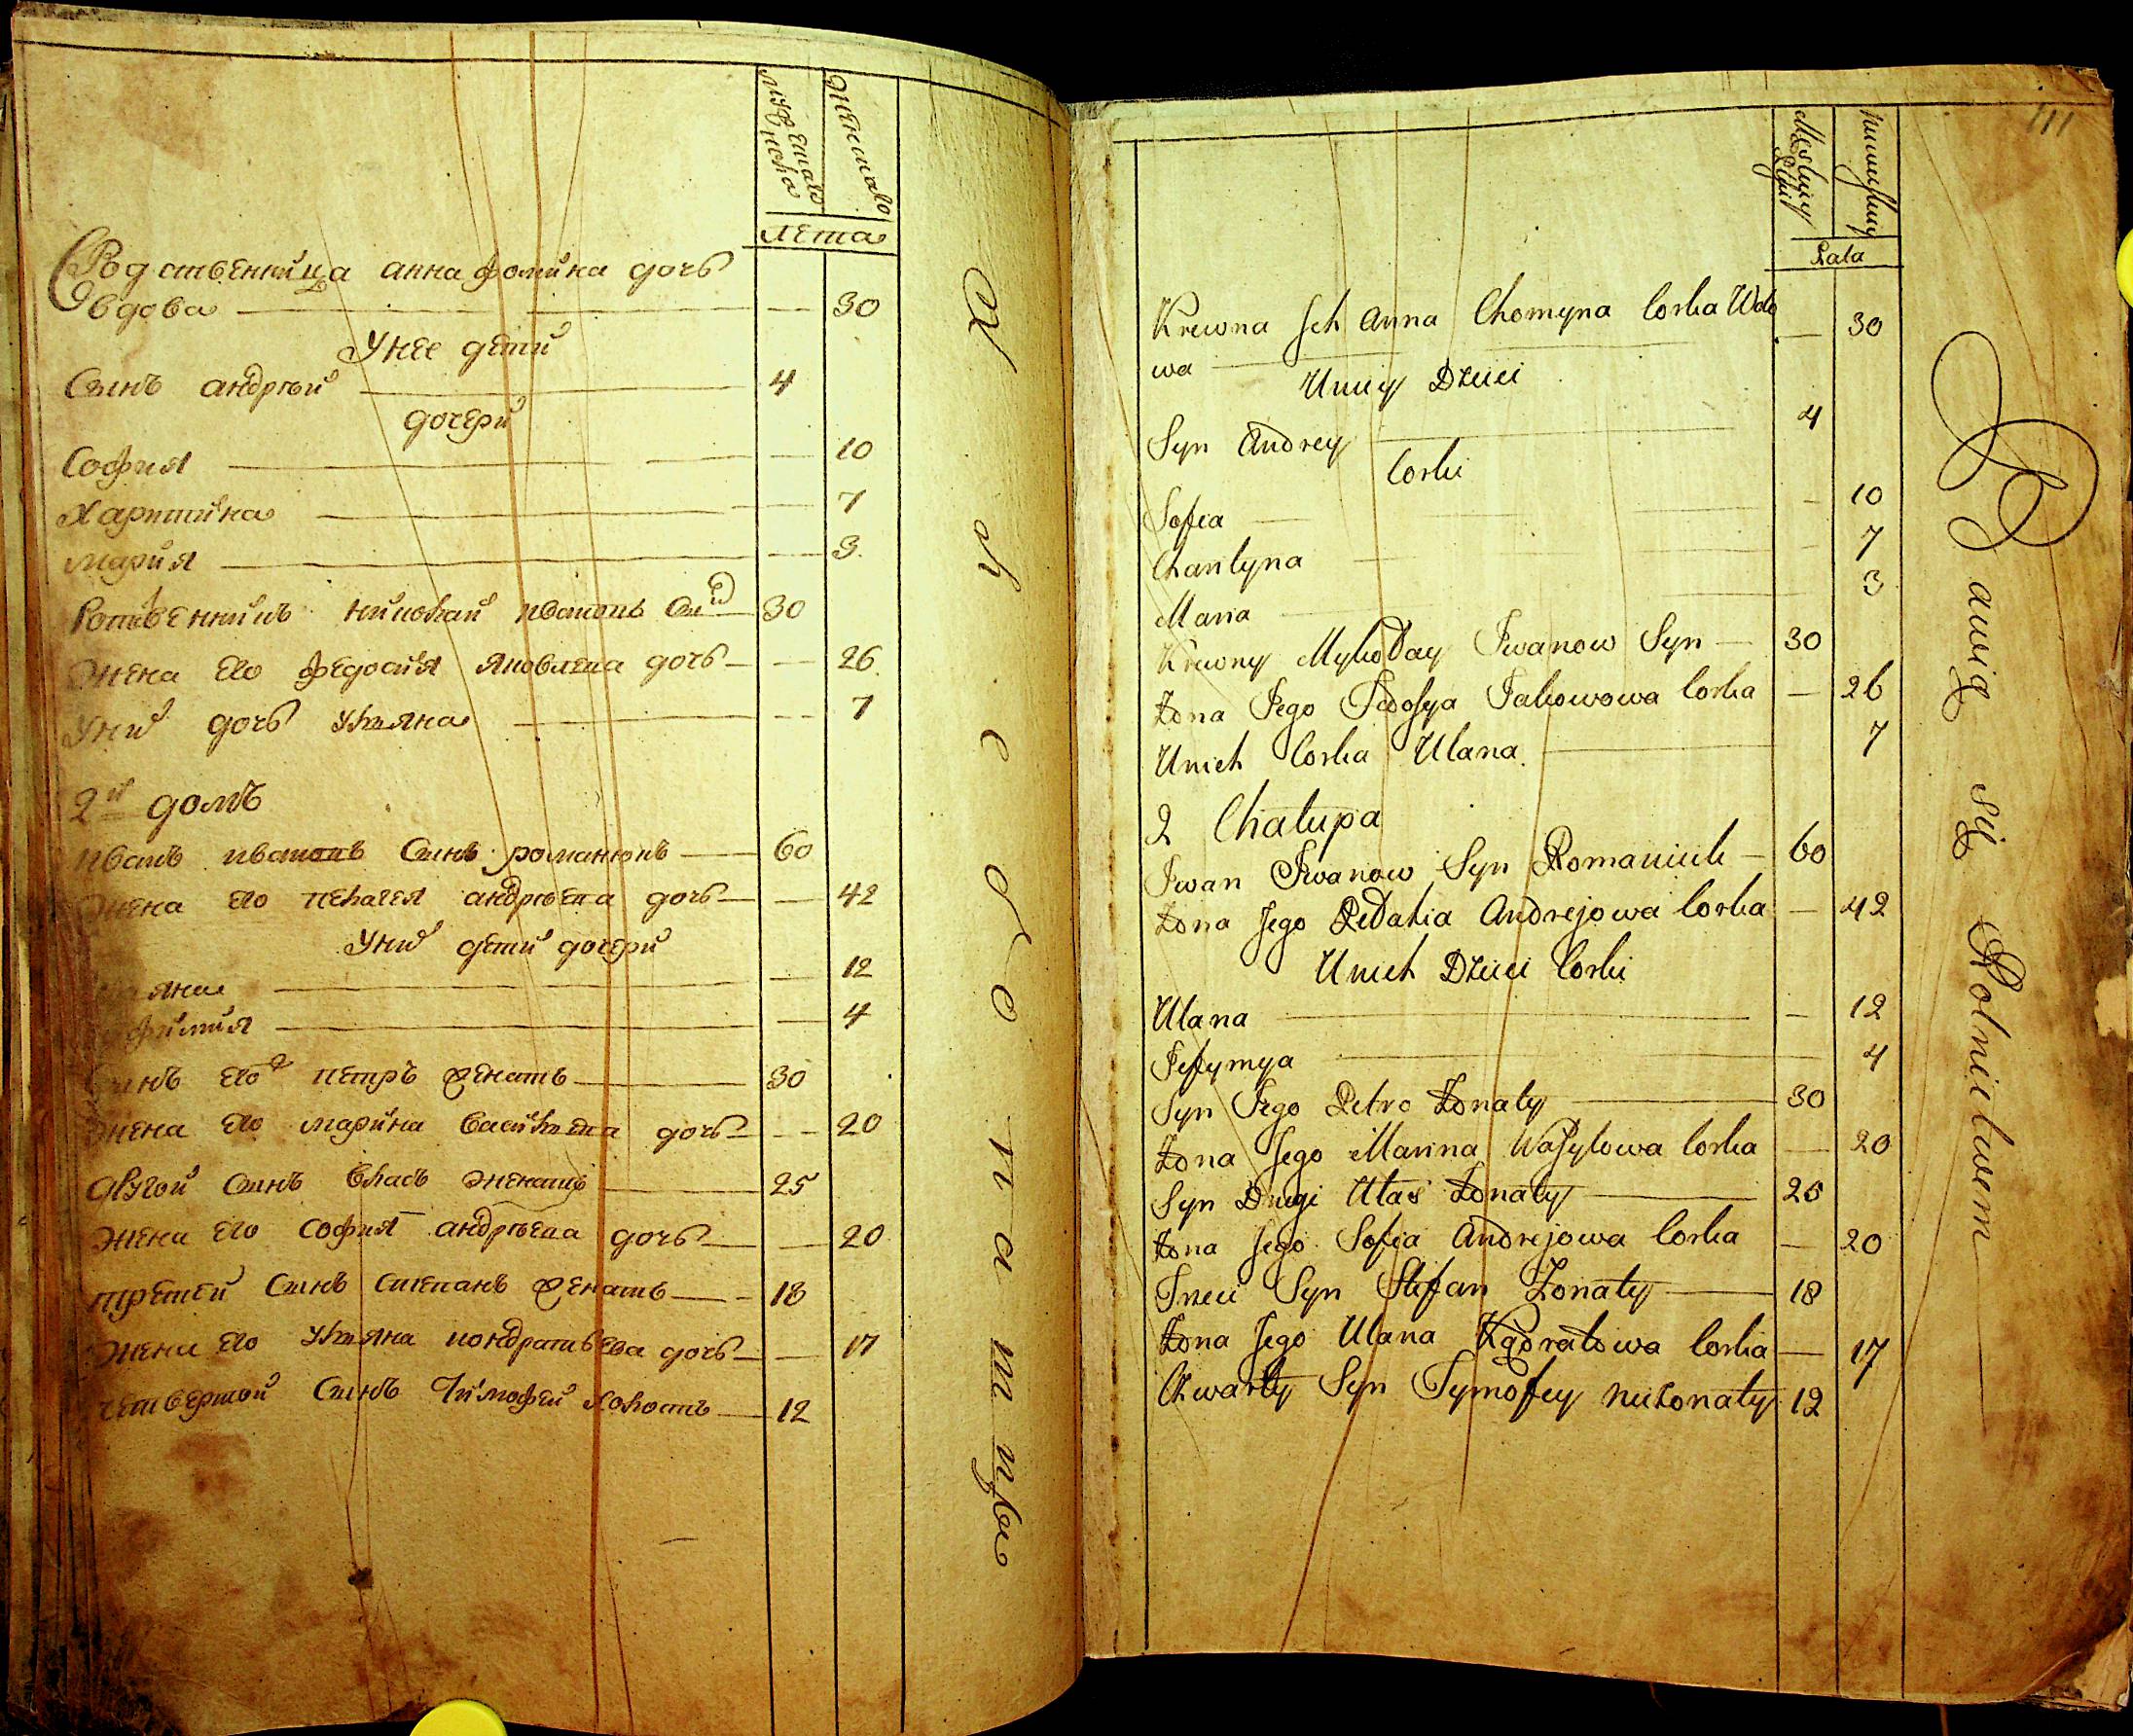 мужеска
женска
лета
Родственница анна фомина дочь
вдова — 30
У нее дети
Сынъ андрей — 4
дочери
София — 10
Харитина — 7
Мария — 3
Ротвенникъ николай ивановъ сын — 30
Жена его федосия яковлева дочь — 26
У них дочь Ульяна — 7
2й домъ
иванъ ивановъ Сынъ романюкъ — 60
Жена его пелагея андреева дочь — 42
У них дети дочери
12
4
Сынъ его петръ женатъ — 30
Жена его марина васильева дочь — 20
другой сынъ власъ женатъ — 25
Жена его София андреева дочь — 20
третей Сынъ степанъ женатъ — 18
Жена его Ульяна кондратьева дочь — 17
четвертой Сынъ Тимофей холостъ — 12
111
Lata
Krewna Jch Anna Chomyna Corka Wdo — 30
wa
Uniey Dzieci
Syn Andrey — 4
Corki
Sofia — 10
Charityna — 7
Maria — 3
Krewny Mykołay Jwanow Syn — 30
Żona Jego Fedosya Jakowowa Corka — 26
Unich Corka Ulana — 7
2 Chałupa
Jwan Jwanow Syn Romaniuk — 60
Żona Jego Pełahia Andrejowa Corka — 42
Unich Dzieci Corki
Ulana — 12
Jefymya — 4
Syn Jego Petro Żonaty — 30
Żona Jego Marina Wasylowa Corka — 20
Syn Drugi Ułas Żonaty — 25
Żona Jego Sofia Andrejowa Corka — 20
Trzeci Syn Stefan Żonaty — 18
Żona Jego Ulana Kądratowa Corka — 17
Czwarty Syn Tymofey nieżonaty 12
Bawią się Rolnictwem